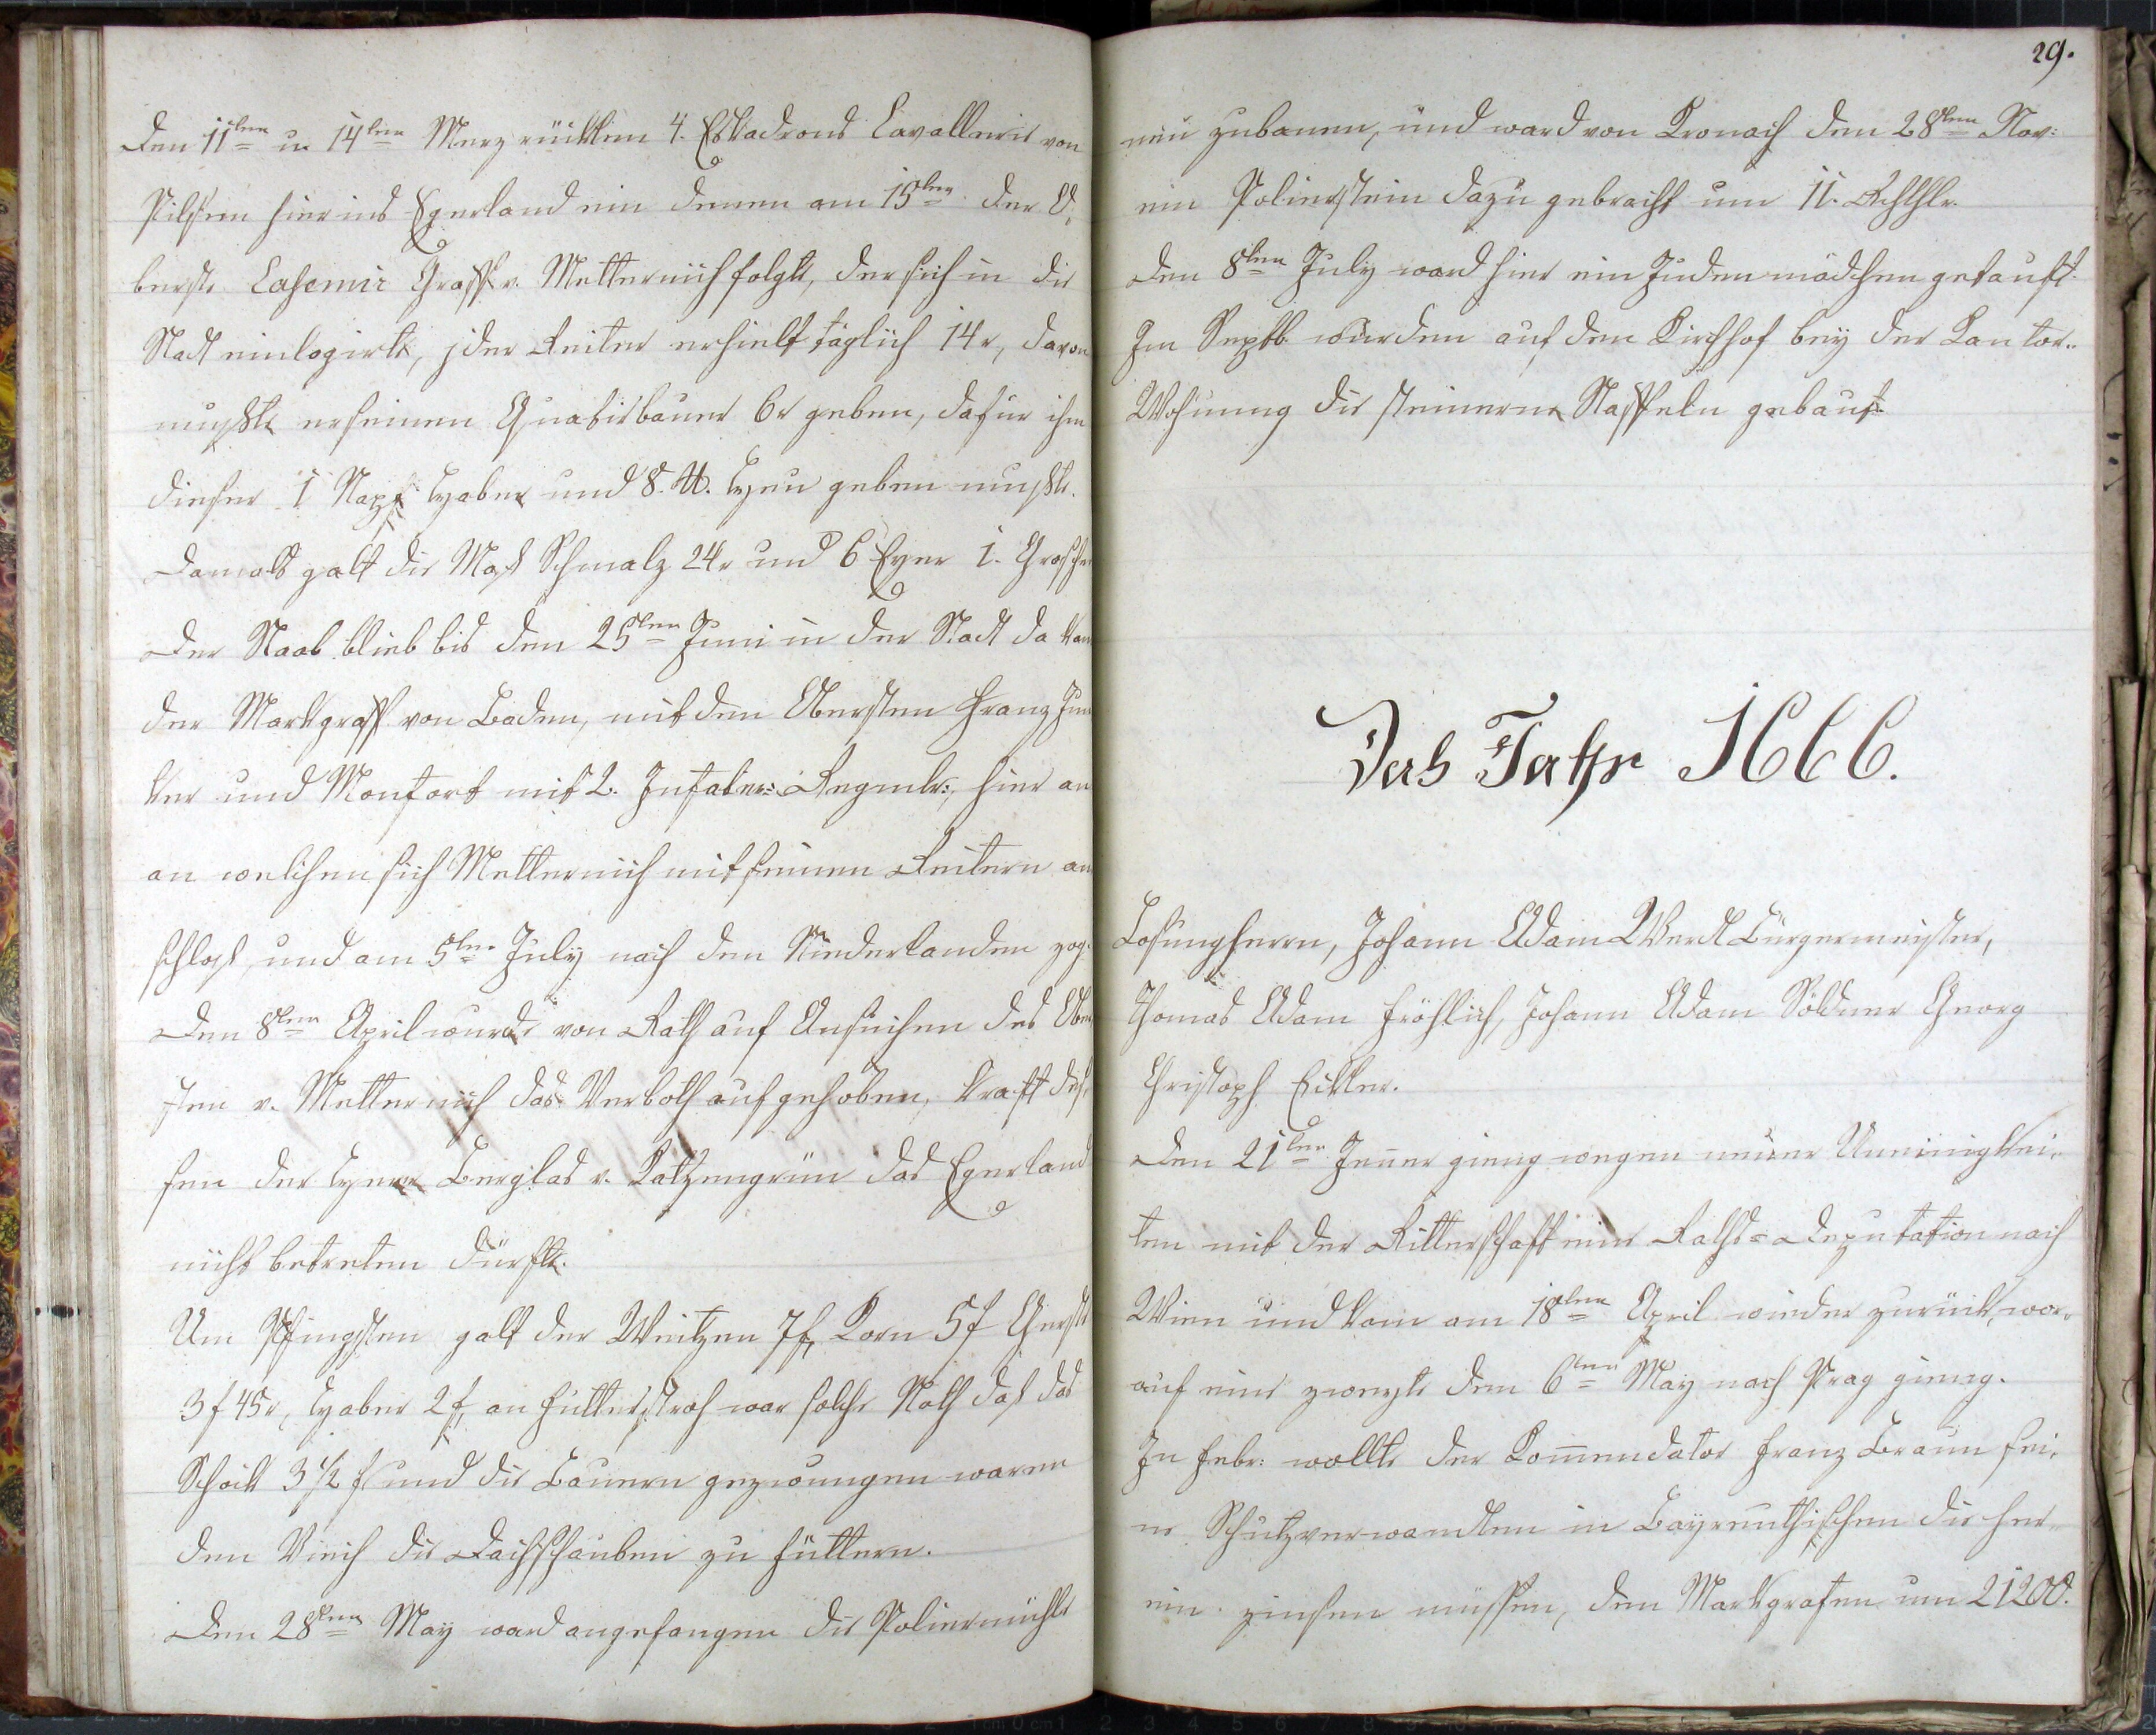 Den 11ten u 14ten Merz rückten 4. Eskadrons Cavallerie von
Pilsen hier ins Egerland ein denen am 15ten der O,
berste Casemir Graff v. Metternich folgte, der sich in die
Stadt einlogirte, jder Reiter erhielt täglich 14 x, davon
mußte er seinen Quatirbauer 6x geben, dafür ihm
dieser 1 Napf Haber und 8. ℔. Heu geben mußte.
Damals galt die Maß Schmalz 24x und 6 Eyer 1. Groschen
Der Staab blieb bis den 25ten Juni in der Stadt da kam
der Markgraff von Baden, mit den Obersten Franz Jun
ker und Monfort mit 2. Infater: Regmtr:, hier an
an welchen sich Metternich mit seinen Reitern an
schloß, und am 5ten July nach den Niederlanden zog.
Den 8ten April wurde von Rath auf Ansuchen des Ober
sten v. Metternich das Verboth aufgehoben, kraft des,
sen der Herr Berglas v. Katzengrün das Egerland
nicht betreten dürfte.
Um Pfingsten galt der Weitzen 7f, Korn 5f Gerste
3f 45x, Haber 2f, an Futterstroh war solche Noth daß das
Schock 3 1/2 f und die Bauern gezwungen waren
den Viech die Dachschauben zu füttern.
Den 28ten May ward angefangen die Poliermühle
29.
neu zubauen, und ward von Kronach den 28ten Nov:
ein Polierstein dazu gebracht um 11. Rchthlr.
Den 8ten July ward hier ein Judenmädchen getauft.
Im Septb. wurden auf den Kirchhof bey der Kantor-
Wohnung die steinerne Staffeln gebaut.
Das Jahr 1666.
Losungherrn, Johann Adam Werdt Bürgermeister,
Thomas Adam Fröhlich, Johann Adam Söldner Georg
Christoph Eckler.
Den 21ten Jener gieng wegen neuer Uneinigkei-
ten mit der Ritterschaft eine Raths-Deputation nach
Wien und kam am 18ten April wieder zurück, wor-
auf eine zweyte den 6ten May nach Prag gieng.
In Febr: wollte der Kom̄endator Franz Braun sei,
ne Schutzverwandten in Bayreuthischen die her-
ein zinsen müssen, dem Markgrafen um 21200.